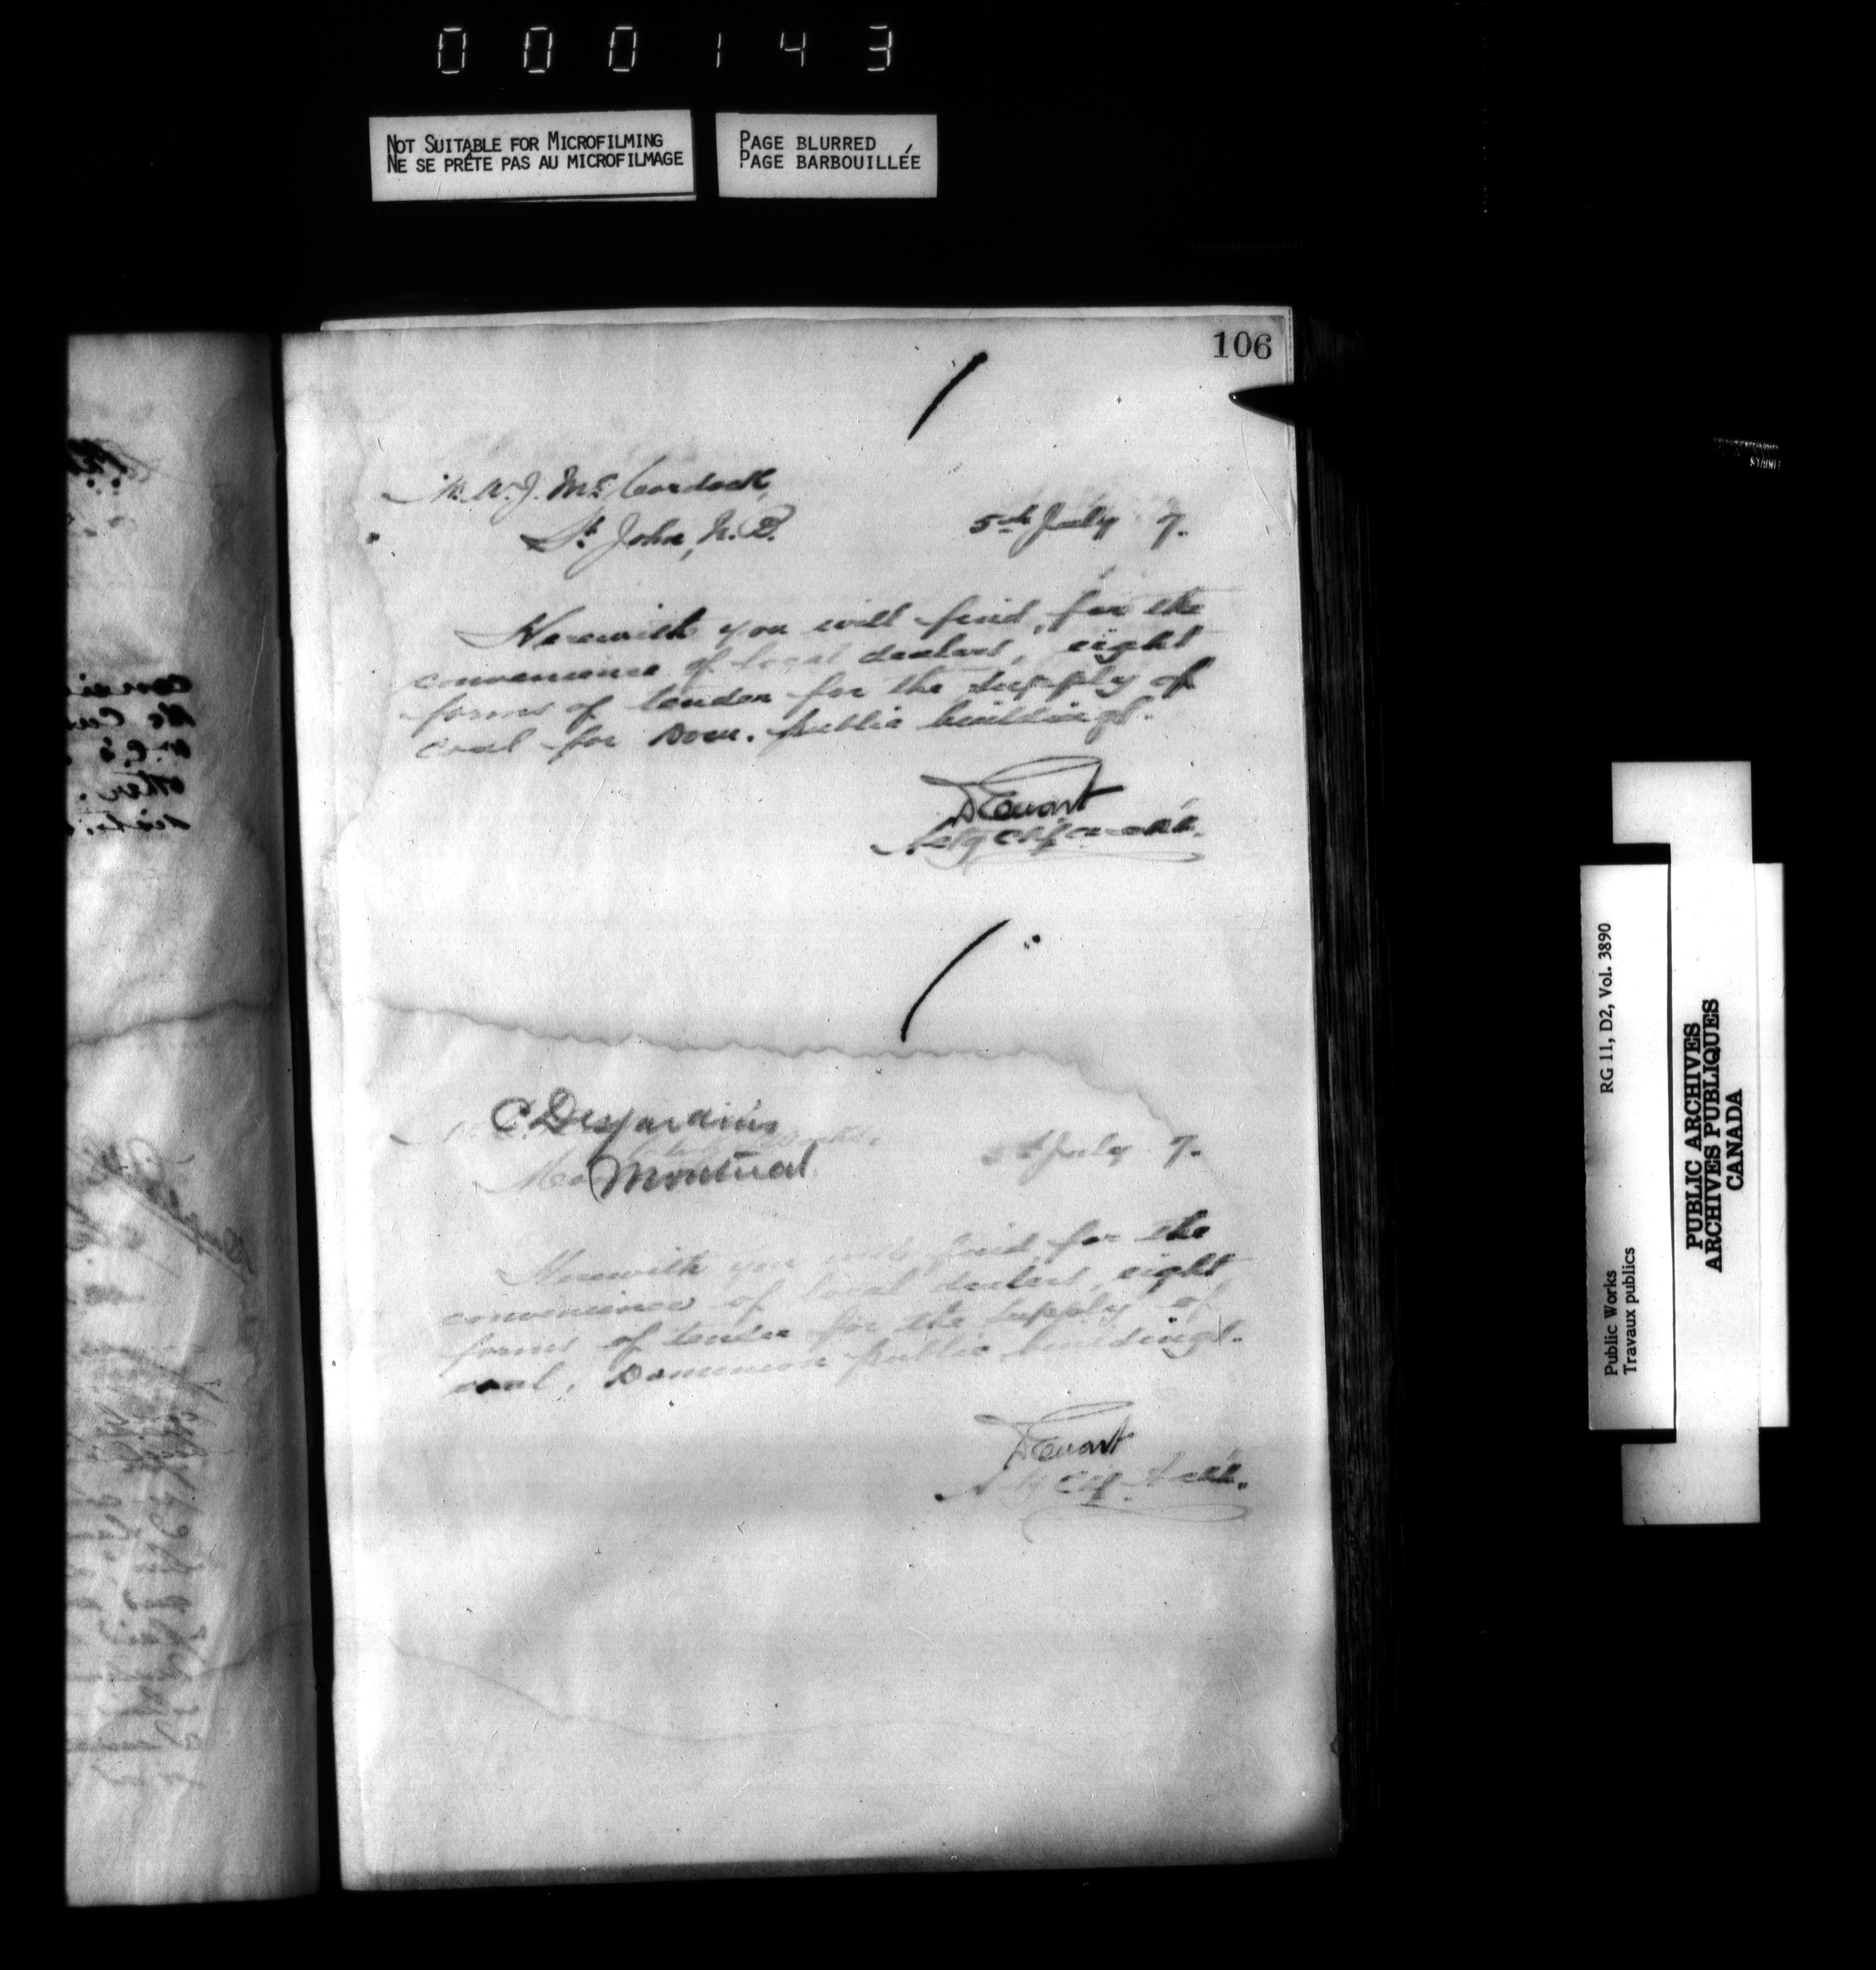 000143
NOT SUITABLE FOR MICROFILMING
NE SE PRÊTE PAS AU MICROFILMAGE
PAGE BLURRED
PAGE BARBOUILLÉE
106
W. J. Mc
St. John, N.B.
5th July 7.
Herewith you will find, for the
convenience of local dealers, eight
forms of tender for the supply of
coal for Dom. public buildings.
D Ewart
Actg Chf Archt.
C Desjardins
Montreal
5th July 7.
Herewith you will find, for the
convenience of local dealers, eight
forms of tender for the supply of
coal, Dominion public buildings.
D Ewart
Actg Chf. Archt.
RG 11, D2, Vol. 3890
Public Works
Travaux publics
PUBLIC ARCHIVES
ARCHIVES PUBLIQUES
CANADA